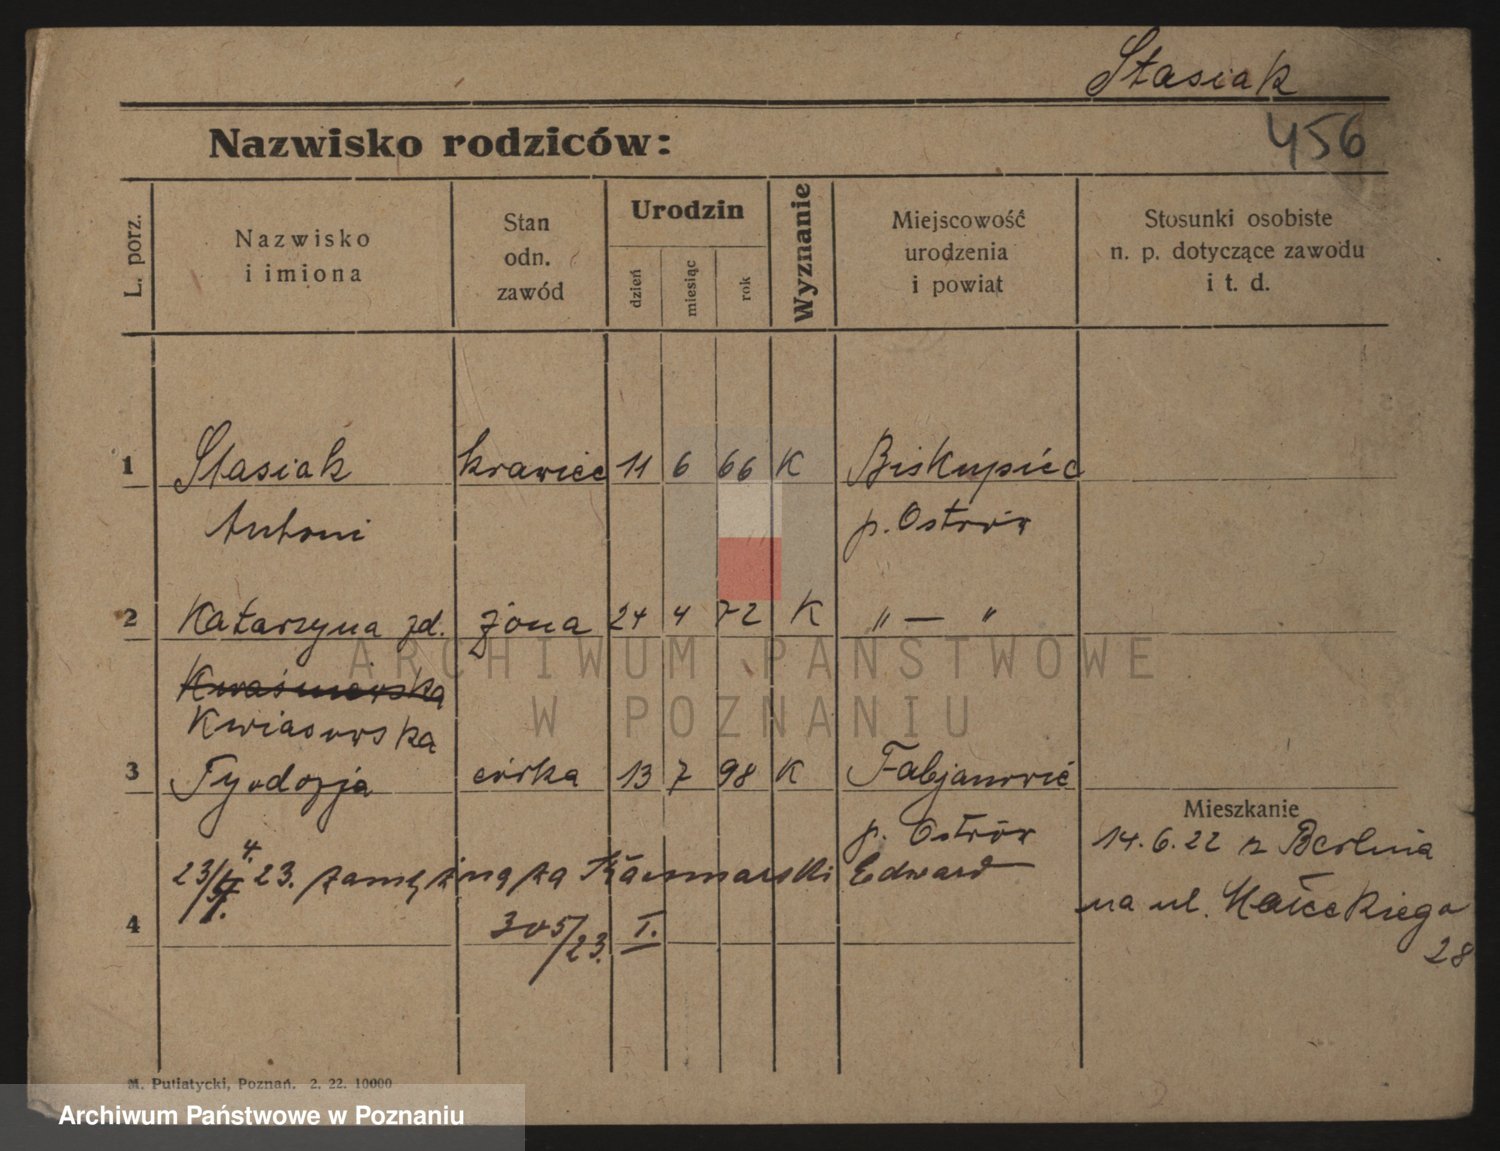 Stasiak
456
Nazwisko rodziców:
L. porz.
Nazwisko
i imiona
Stan
odn.
zawód
Urodzin
dzień
miesiąc
rok
Wyznanie
Miejscowość
urodzenia
i powiat
Stosunki osobiste
n. p. dotyczące zawodu
i t. d.
1 Stasiak krawiec 11 6 66 K Biskupiec
Antoni p. Ostrów
2 Katarzyna zd. żona 24 4 72 K " — "
Kwaśniewska
Kwiasowska
3 córka 13 7 98 K Fabjanowic
p. Ostrów
Mieszkanie
14.6.22 z Berlina
23. zamężna za Edward
na ul. Małeckiego
28
4 305/23. I.
M. Putiatycki, Poznań. 2. 22. 10000
ARCHIWUM PAŃSTWOWE
W POZNANIU
Archiwum Państwowe w Poznaniu